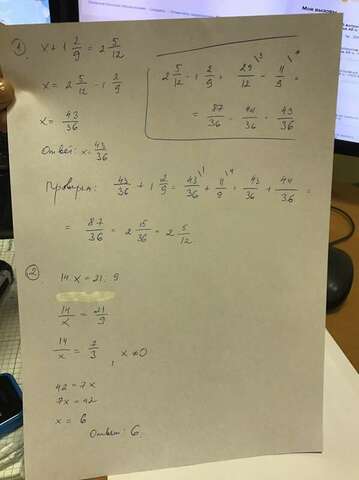 1) x + 1 2/9 = 2 5/12
x = 2 5/12 - 1 2/9
x = 43/36
Ответ: x = 43/36
2 5/12 - 1 2/9 = 29/12 \3 - 11/9 \4 =
= 87/36 - 44/36 = 43/36
Проверка: 43/36 + 1 2/9 = 43/36 \1 + 11/9 \4 = 43/36 + 44/36 =
= 87/36 = 2 15/36 = 2 5/12
2)
14 : x = 21 : 9
14/x = 21/9
14/x = 7/3 , x ≠ 0
42 = 7x
7x = 42
x = 6
Ответ: 6.